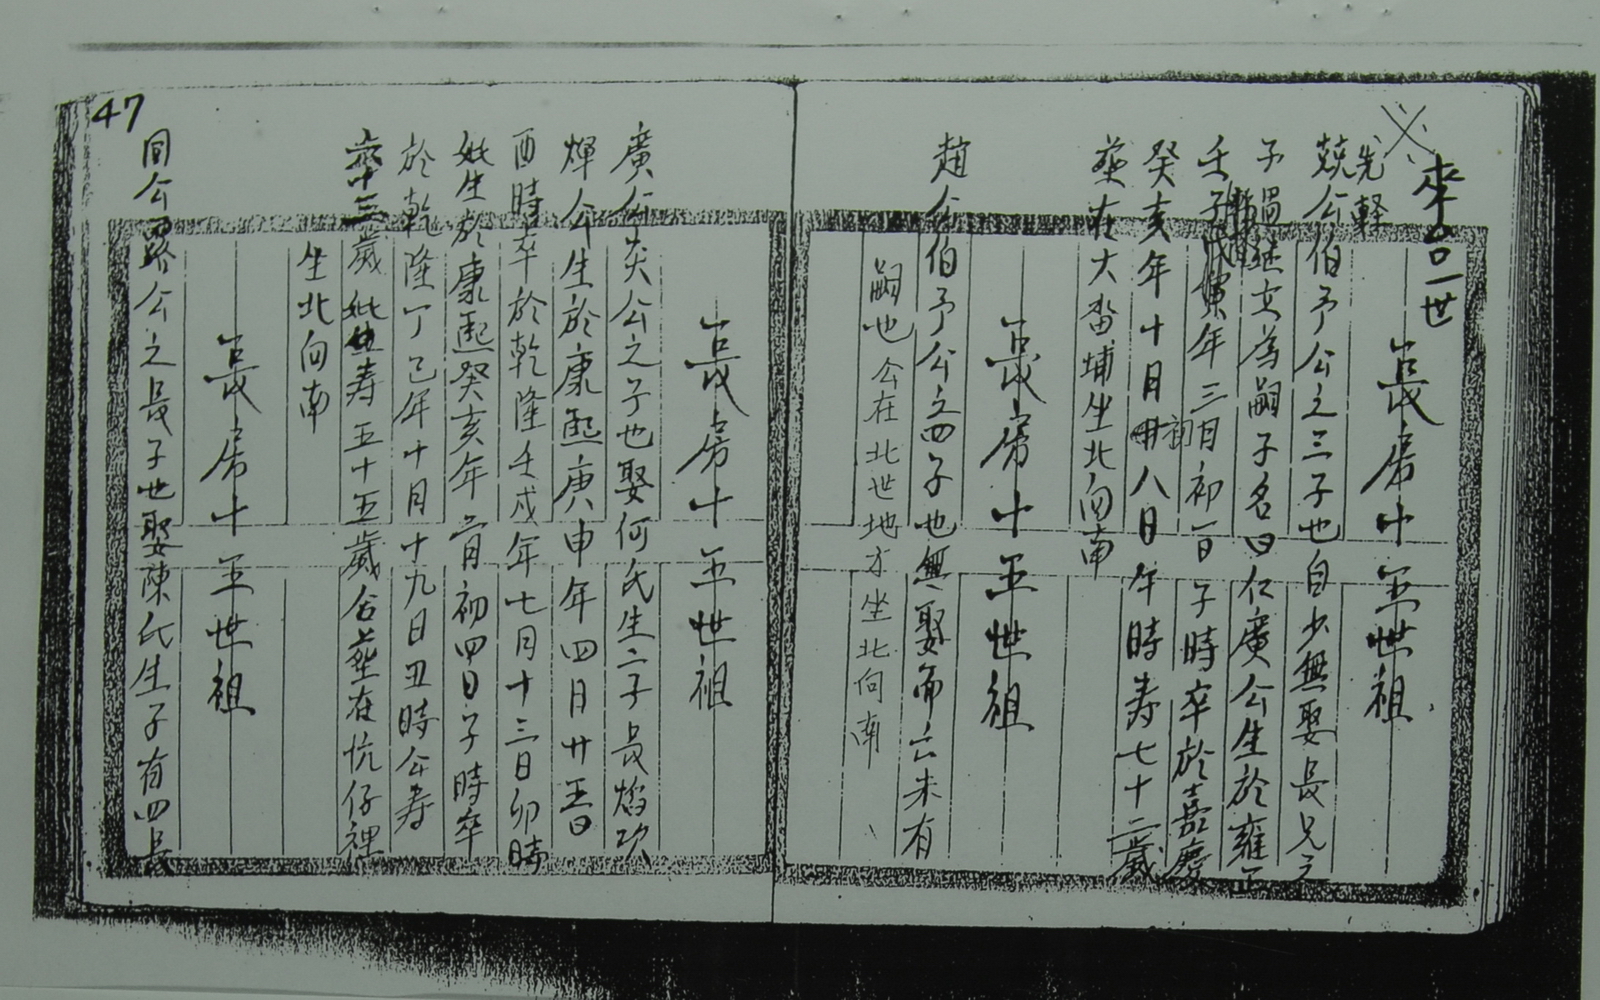 長房十五世祖
公伯予公之三子也自少無娶長兄之
子過繼文為嗣子名曰仁廣公生於雍正
壬子年三月初一日子時卒於嘉慶
癸亥年十月初八日午時寿七十二歲
葬在大畓埔坐北向南
長房十五世祖
趙公伯予公之四子也無娶而亡未有
嗣也公在北世地方坐北向南
長房十五世祖
廣公炎公之子也娶何氏生二子長焰次
煇公生於康熙庚申年四月廿五日
酉時卒於乾隆壬戌年七月十三日卯時
妣生於康熙癸亥年二月初四日子時卒
於乾隆丁巳年十月十九日丑時公寿
六十三歲妣寿五十五歲合葬在坑仔裡
坐北向南
長房十五世祖
公之長子也娶陳氏生子有四長
47